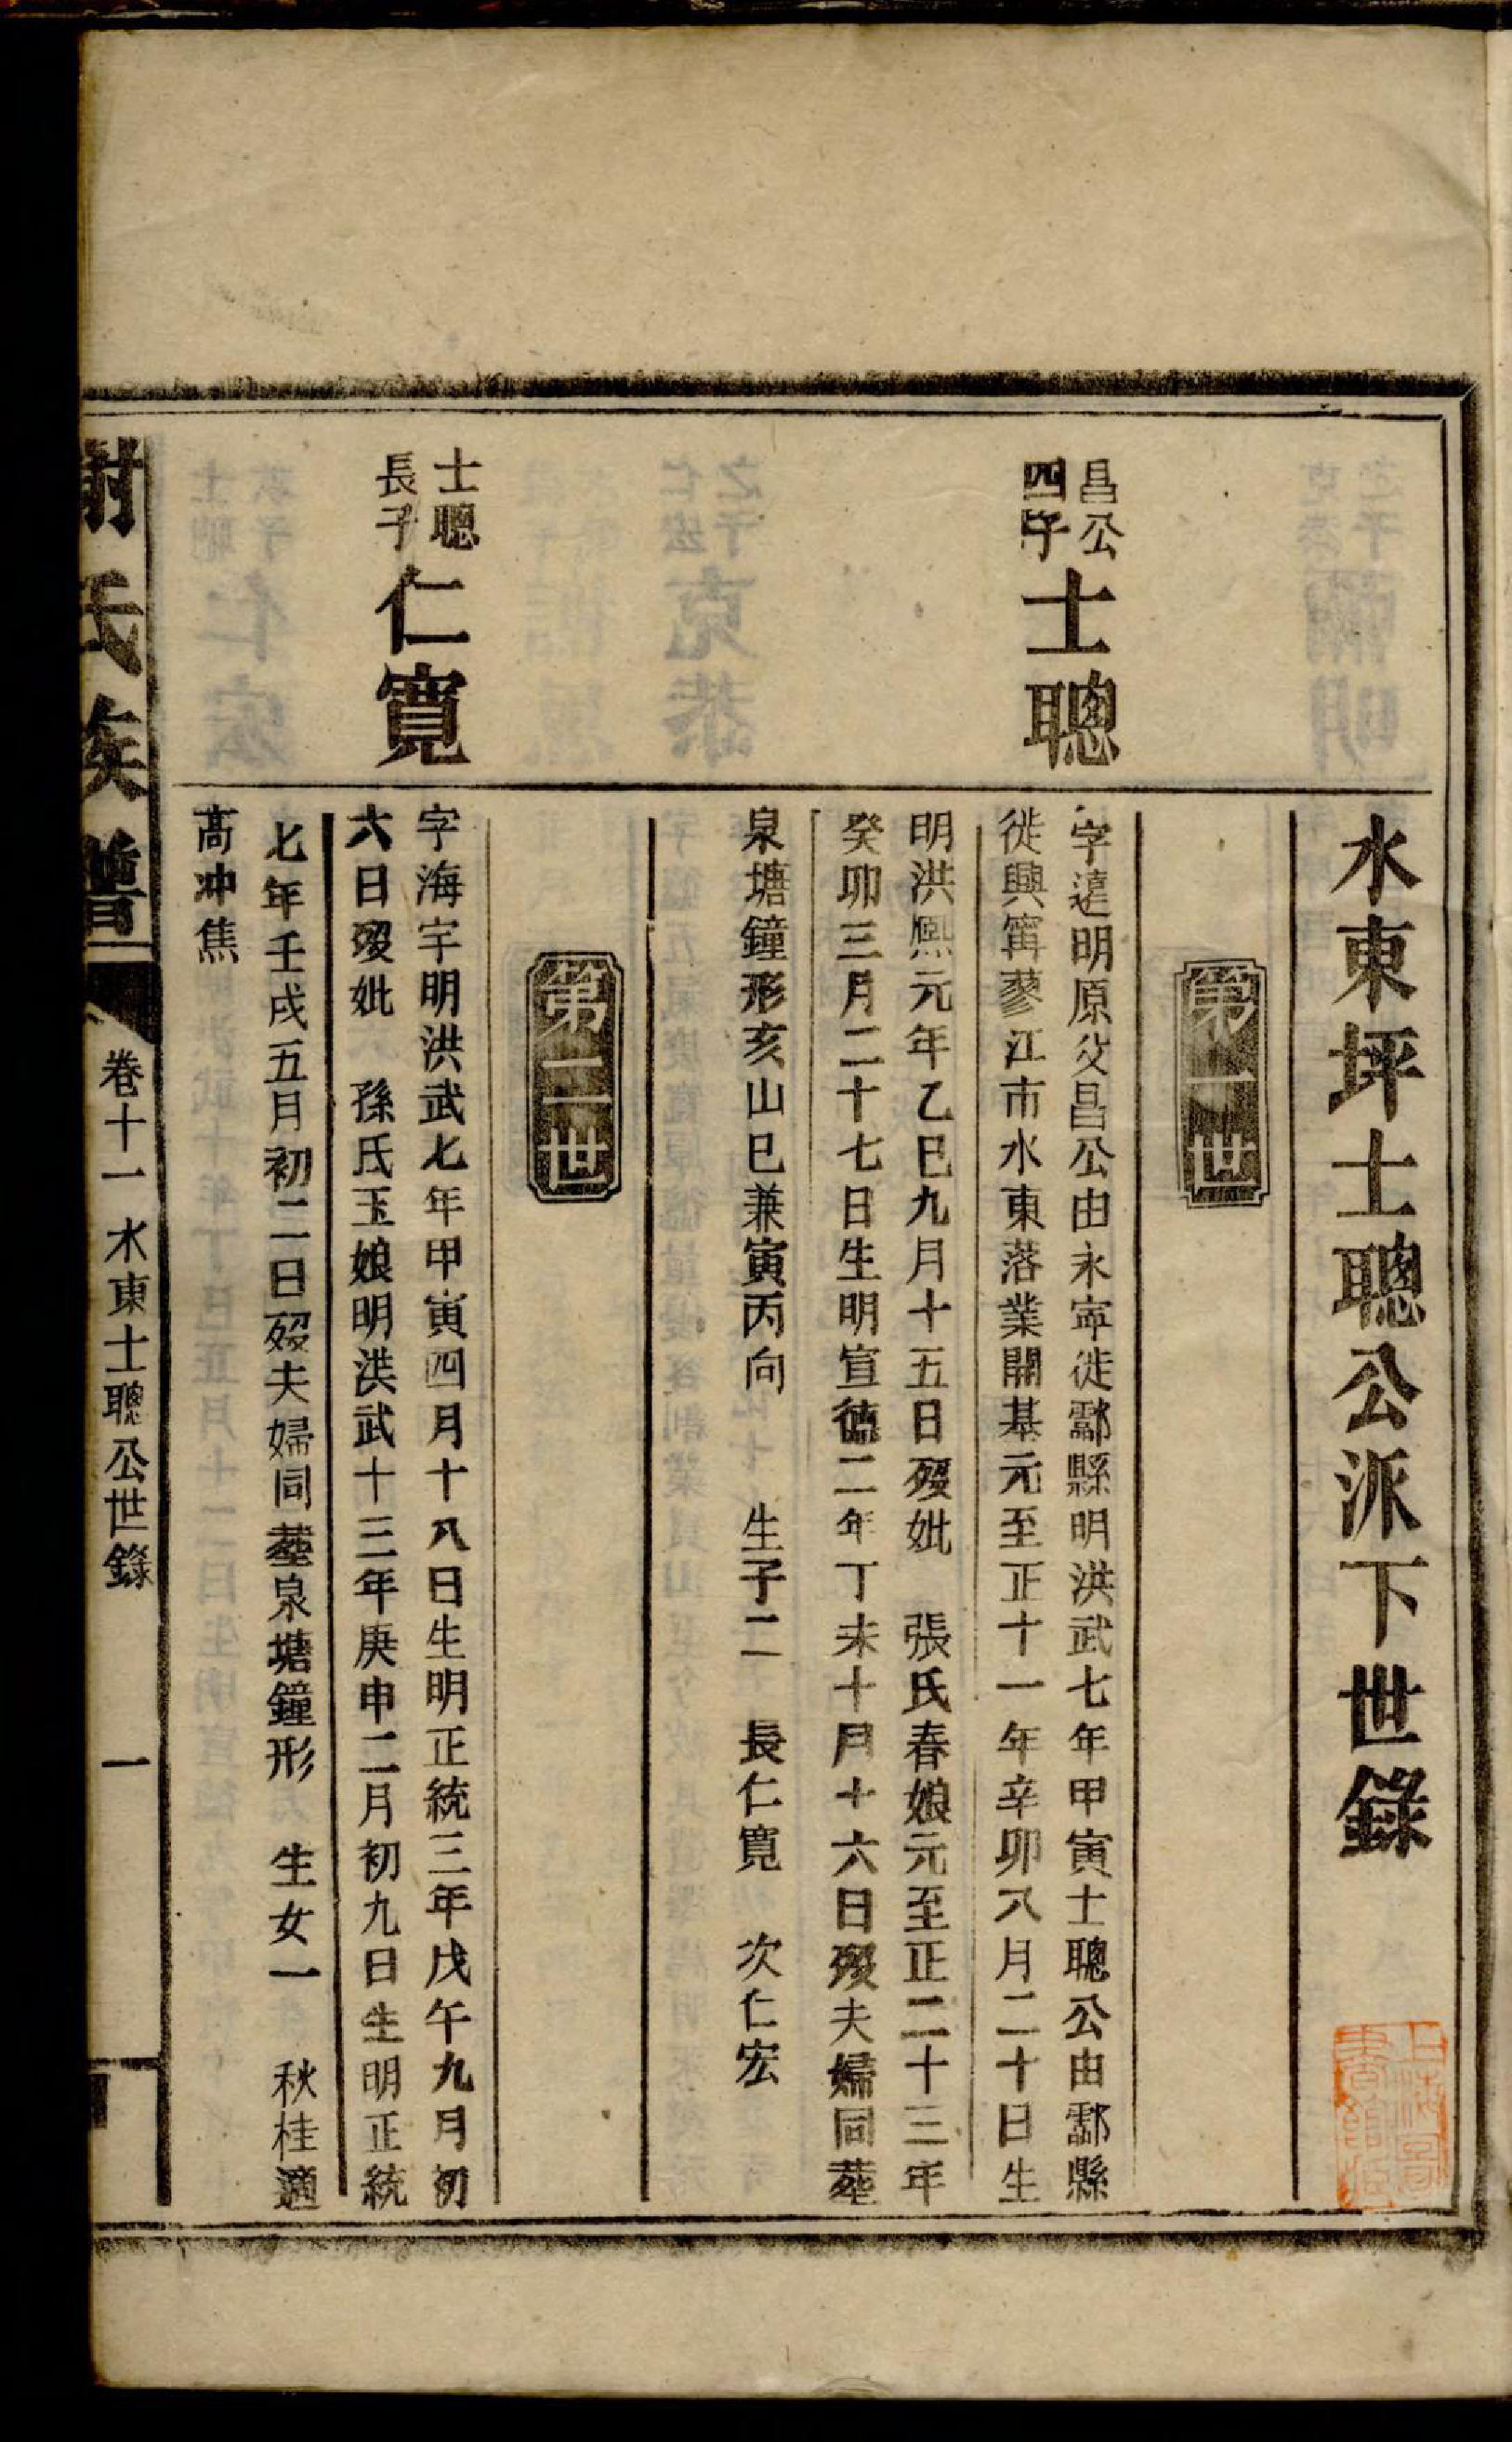 水東坪士聰公派下世錄
第一世
昌公
四子
士聰
字遠明原父昌公由永寧徙酃縣明洪武七年甲寅士聰公由酃縣
徙興寗蓼江市水東落業開基元至正十一年辛卯八月二十日生
明洪熙元年乙巳九月十五日歿妣　張氏春娘元至正二十三年
癸卯三月二十七日生明宣德二年丁未十月十六日歿夫婦同塟
泉塘鐘形亥山巳兼寅丙向　生子二　長仁寬　次仁宏
第二世
士聰
長子
仁寬
字海宇明洪武七年甲寅四月十八日生明正統三年戊午九月初
六日歿妣　孫氏玉娘明洪武十三年庚申二月初九日生明正統
七年壬戌五月初二日歿夫婦同塟泉塘鐘形　生女一　秋桂適
高冲焦
謝氏族譜
卷十一水東士聰公世錄
一